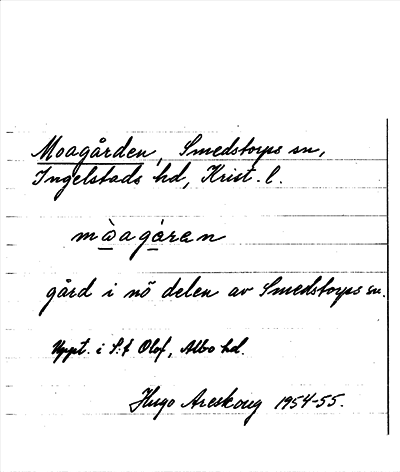 Moagården, Smedstorps sn,
Ingelstads hd, Krist. l.
mòagáran
gård i nö delen av Smedstorps sn.
Uppt. i S:t Olof, Albo hd.
Hugo Areskoug 1954-55.